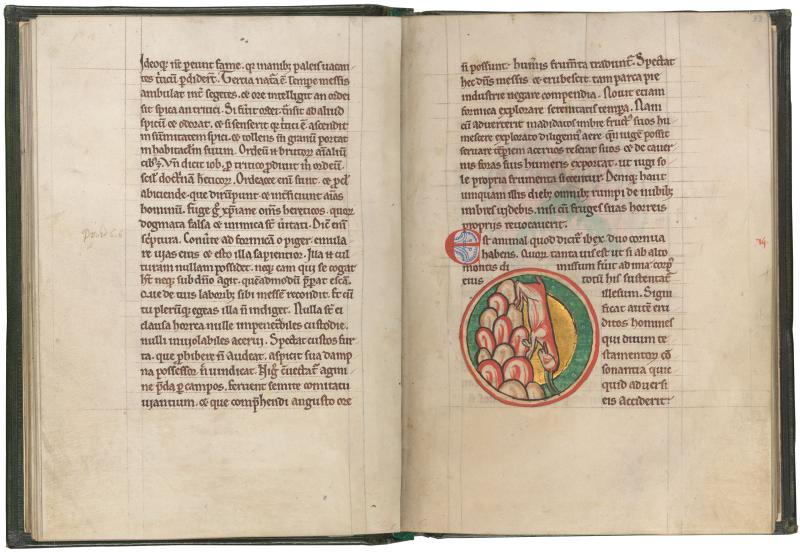 Ideoque nec pereunt fame. qe manib; paleis uacan
tes triticu perdider. Tertia natura e. Tempe messis
ambulat int segetes. ce ore intelligit an ordei
sit spica an tritici. Si fuerit ordei. transit ad aliud
spicu ce odorat. ce si senserit qe tritici e. ascendit
in summitatem spici. ce tollens in granu portat
in habitaclm suum. Ordeu e brutor animaliu
cib;. Vn dicit iob. p tritico prodiuit m ordeu.
scil doctrina hereticor. Ordeacee eni sunt. ce pcl
abiciende. que dirupunt. ce inficiunt aias
hominu. Fuge g xpiane oms hereticos. quor
dogmata falsa ce inimica st ueritati. Dic eni
scriptura. Confer te ad formica o piger. emula
re uias eius ce esto illa sapientior. Illa n cul
turam nullam possidet. neq; eam qui se cogat
ht neq; sub dno agit. quéadmodu ppat esca.
que de tuis laborib; sibi messe recondit. Et cu
tu pleruq; egeas illa n indiget. Nulla st ei
clausa horrea. nulle impenetrabiles custodie.
nulli inuiolabiles acerui. Spectat custos fur
ta. que phibere n Audeat. aspicit sua damp
na possessor. n uindicat. Nigro cuectat agmi
ne pda p campos. feruent semite comitatu
uiantium. ce que comphendi angusto ore
n possunt. humis frumta tradunt. Spectat
hec dns messis ce erubescit. tam parca pie
industrie negare compendia. Nouit eciam
formica explorare serenitatis tempa. Nam
cu aduerterit madidatos imbre fruct suos hu
mescere explorato diligentius aere. qn iuge possit
seruare tepiem aceruos reserat suos ce de cauer
nis foras suis humeris exportat. ut iugi so
le propria frumenta siccentur. Deniq; haut
umquam illis dieb; omnib; rumpi de nubib;
imbres uidebis. nisi cu fruges suas horreis
proprijs reuocauerit.
Est animal quod dicit ibex. duo cornua 74.
habens. Quor tanta uis est ut si ab alto
montis di missum fuit ad ima. corp
eius totu his sustentat
illesum. Signi
ficat aute eru
ditos homines
qui diuim te
stamentor co
sonantia quic
quid aduersi
eis acciderit.